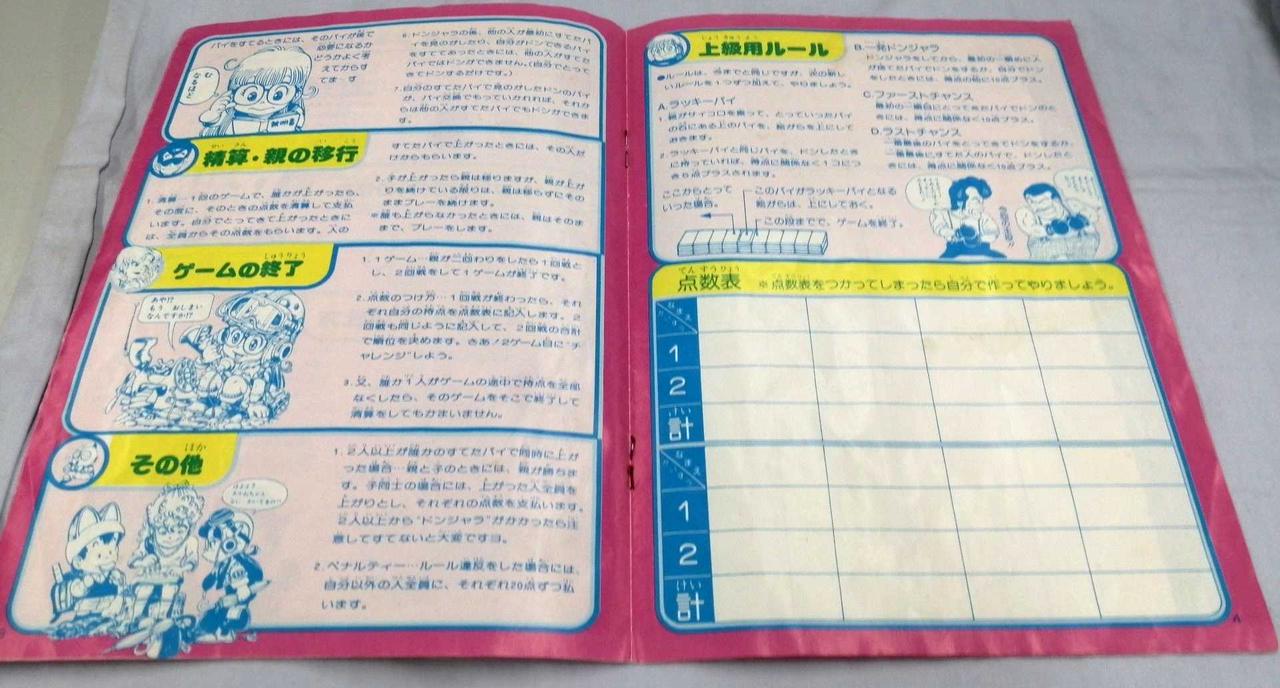 パイをすてるときには、そのパイが後で
必要になるか
どうかよく考
えてからす
てま す
6.ドンジャラの後、他の人が最初にすてたパ
イを見のがしたり、自分がドンできるパイ
をすててあったときには、他の人がすてた
パイではドンができません。(自分でとって
きてドンするだけです。)
7.自分のすてたパイで見のがしたドンのパイ
が、パイ交換でもっていかれれば、それか
らは他の人がすてたパイでもドンができま
す。
せいさん いこう
精算・親の移行
1.清算…1回のゲームで、誰かが上がったら、
その度に、そのときの点数を清算して支払
います。自分でとってきて上がったときに
は、全員からその点数をもらいます。人の
すてたパイで上がったときには、その人だ
けからもらいます。
2.子が上がったら親は移りますが、親が上が
りを続けている限りは、親は移らずにその
ままプレーを続けます。
※誰も上がらなかったときには、親はそのま
まで、プレーをします。
しゅうりょう
ゲームの終了
あや!?
もう おしまい
なんですか!?
1.1ゲーム…親が二回わりをしたら1回戦と
し、2回戦をして1ゲームが終了です。
2.点数のつけ方…1回戦が終わったら、それ
ぞれ自分の持点を点数表に記入します。2
回戦も同じように記入して、2回戦の合計
で順位を決めます。さあ!2ゲーム目に“チ
ャレンジ”しよう。
3.又、誰か1人がゲームの途中で持点を全部
なくしたら、そのゲームをそこで終了して
清算をしてもかまいません。
ほか
その他
1.2人以上が誰かのすてたパイで同時に上が
った場合…親と子のときには、親が勝ちま
す。子同士の場合には、上がった人全員を
上がりとし、それぞれの点数を支払います。
2人以上から“ドンジャラ”がかかったら注
意してすてないと大変ですヨ。
2.ペナルティー…ルール違反をした場合には、
自分以外の人全員に、それぞれ20点ずつ払
います。
じょうきゅうよう
上級用ルール
●ルールは、今までと同じですが、次の新し
いルールを1つずつ加えて、やりましょう。
A.ラッキーパイ
1.親がサイコロを振って、とっていったパイ
の右にある上のパイを、絵がらを上にして
おきます。
2.ラッキーパイと同じパイを、ドンしたとき
に持っていれば、得点に関係なく1コにつ
き5点プラスされます。
ここからとって
いった場合。
このパイがラッキーパイとなる
絵がらは、上にしておく。
この段までで、ゲームを終了。
B.一発ドンジャラ
ドンジャラをしてから、最初の一順めに人
が捨てたパイでドンをするか、自分でドン
をしたときには、得点の他に10点プラス。
C.ファーストチャンス
最初の一番目にとって来たパイでドンのと
きには、得点に関係なく10点プラス。
D.ラストチャンス
一番最後のパイをとってきてドンをするか、
一番最後にすてた人のパイで、ドンしたと
きには、得点に関係なく10点プラス。
てんすうひょう
点数表 ※点数表をつかってしまったら自分で作ってやりましょう。
なまえ
1
2
けい
計
なまえ
1
2
けい
計